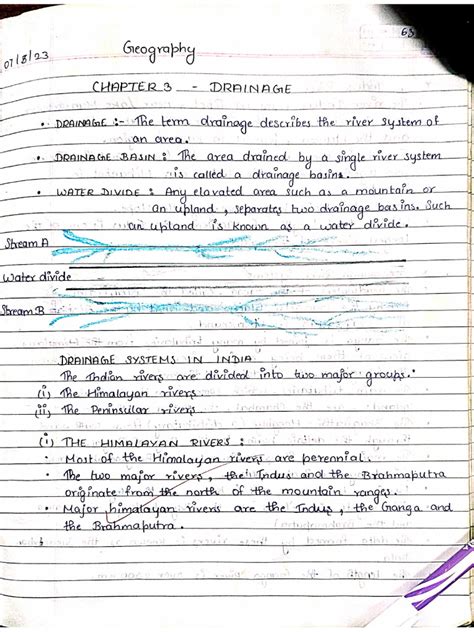 63
07/8/23
Geography
CHAPTER 3 - DRAINAGE
• DRAINAGE :- The term drainage describes the river system of
an area.
• DRAINAGE BASIN : The area drained by a single river system
is called a drainage basins.
• WATER DIVIDE : Any elavated area such as a mountain or
an upland , separates two drainage basins. Such
an upland is known as a water divide.
Stream A
Water divide
Stream B
DRAINAGE SYSTEMS IN INDIA
The Indian rivers are divided into two major groups.
(i) The Himalayan rivers
(ii) The Peninsular rivers
(i) THE HIMALAYAN RIVERS :
• Most of the Himalayan rivers are perennial.
• The two major rivers, the Indus and the Brahmaputra
originate from the north of the mountain ranges.
• Major himalayan rivers are the Indus, the Ganga and
the Brahmaputra.